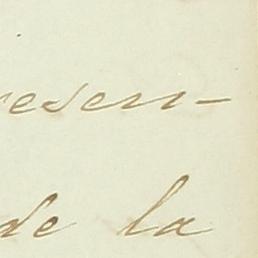 resen-
de la